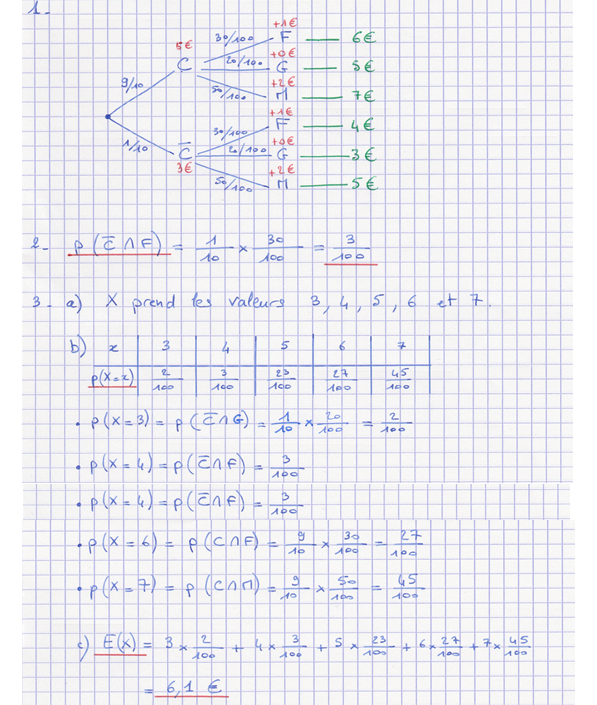 1-
+1€
30/100 F 6€
5€ +0€
C 20/100 G 5€
+2€
9/10 50/100 M 7€
+1€
30/100 F 4€
1/10 +0€
C̅ 20/100 G 3€
3€ +2€
50/100 M 5€
2- p(C̅∩F) = 1/10 × 30/100 = 3/100
3- a) X prend les valeurs 3, 4, 5, 6 et 7.
b) x 3 4 5 6 7
p(X=x) 2/100 3/100 23/100 27/100 45/100
• p(X=3) = p(C̅∩G) = 1/10 × 20/100 = 2/100
• p(X=4) = p(C̅∩F) = 3/100
• p(X=4) = p(C̅∩F) = 3/100
• p(X=6) = p(C∩F) = 9/10 × 30/100 = 27/100
• p(X=7) = p(C∩M) = 9/10 × 50/100 = 45/100
c) E(X) = 3×2/100 + 4×3/100 + 5×23/100 + 6×27/100 + 7×45/100
= 6,1 €